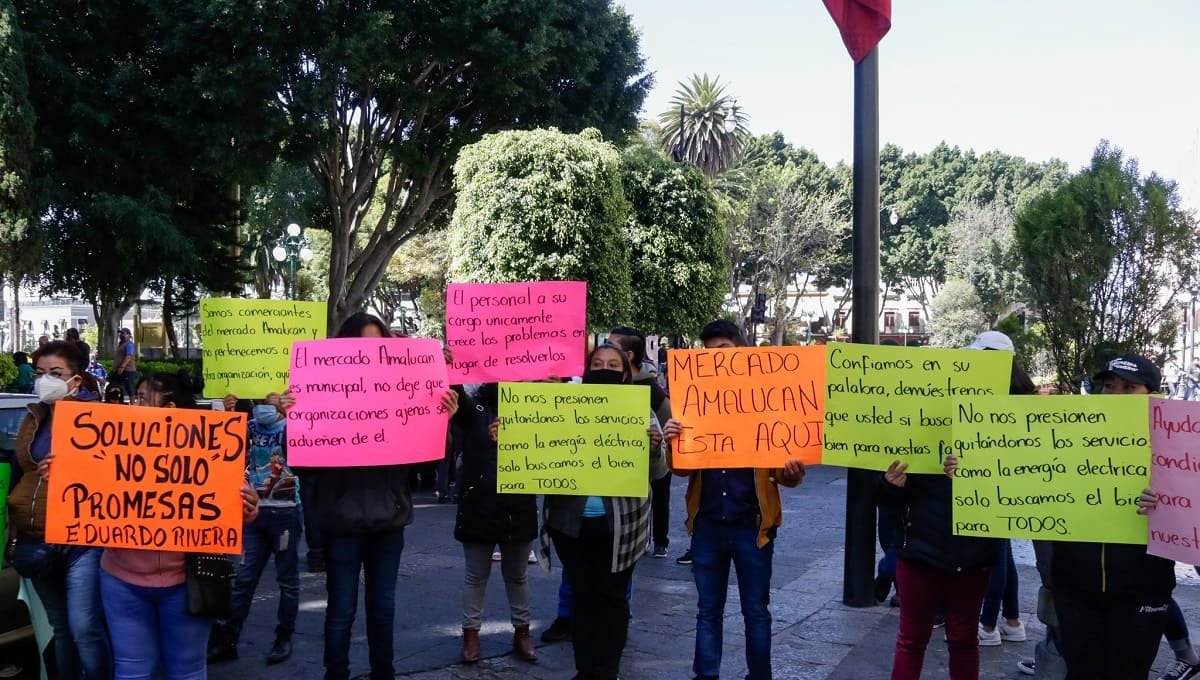 Somos comerciantes
del mercado Amalucan
no pertenecemos a
organización, aquí
El mercado Amalucan
es municipal, no deje que
organizaciones ajenas se
adueñen de el.
El personal a su
cargo unicamente
crece los problemas en
lugar de resolverlos
SOLUCIONES
"NO SOLO
PROMESAS"
EDUARDO RIVERA
No nos presionen
quitándonos los servicio
como la energía eléctrica,
solo buscamos el bien
para TODOS.
MERCADO
AMALUCAN
ESTA AQUI
Confiamos en su
palabra, demuéstrenos
que usted si busca
bien para nuestras f
No nos presionen
quitándonos los servicio
como la energía electrica
solo buscamos el bien
para TODOS.
Ayudo
condi
para
nuest